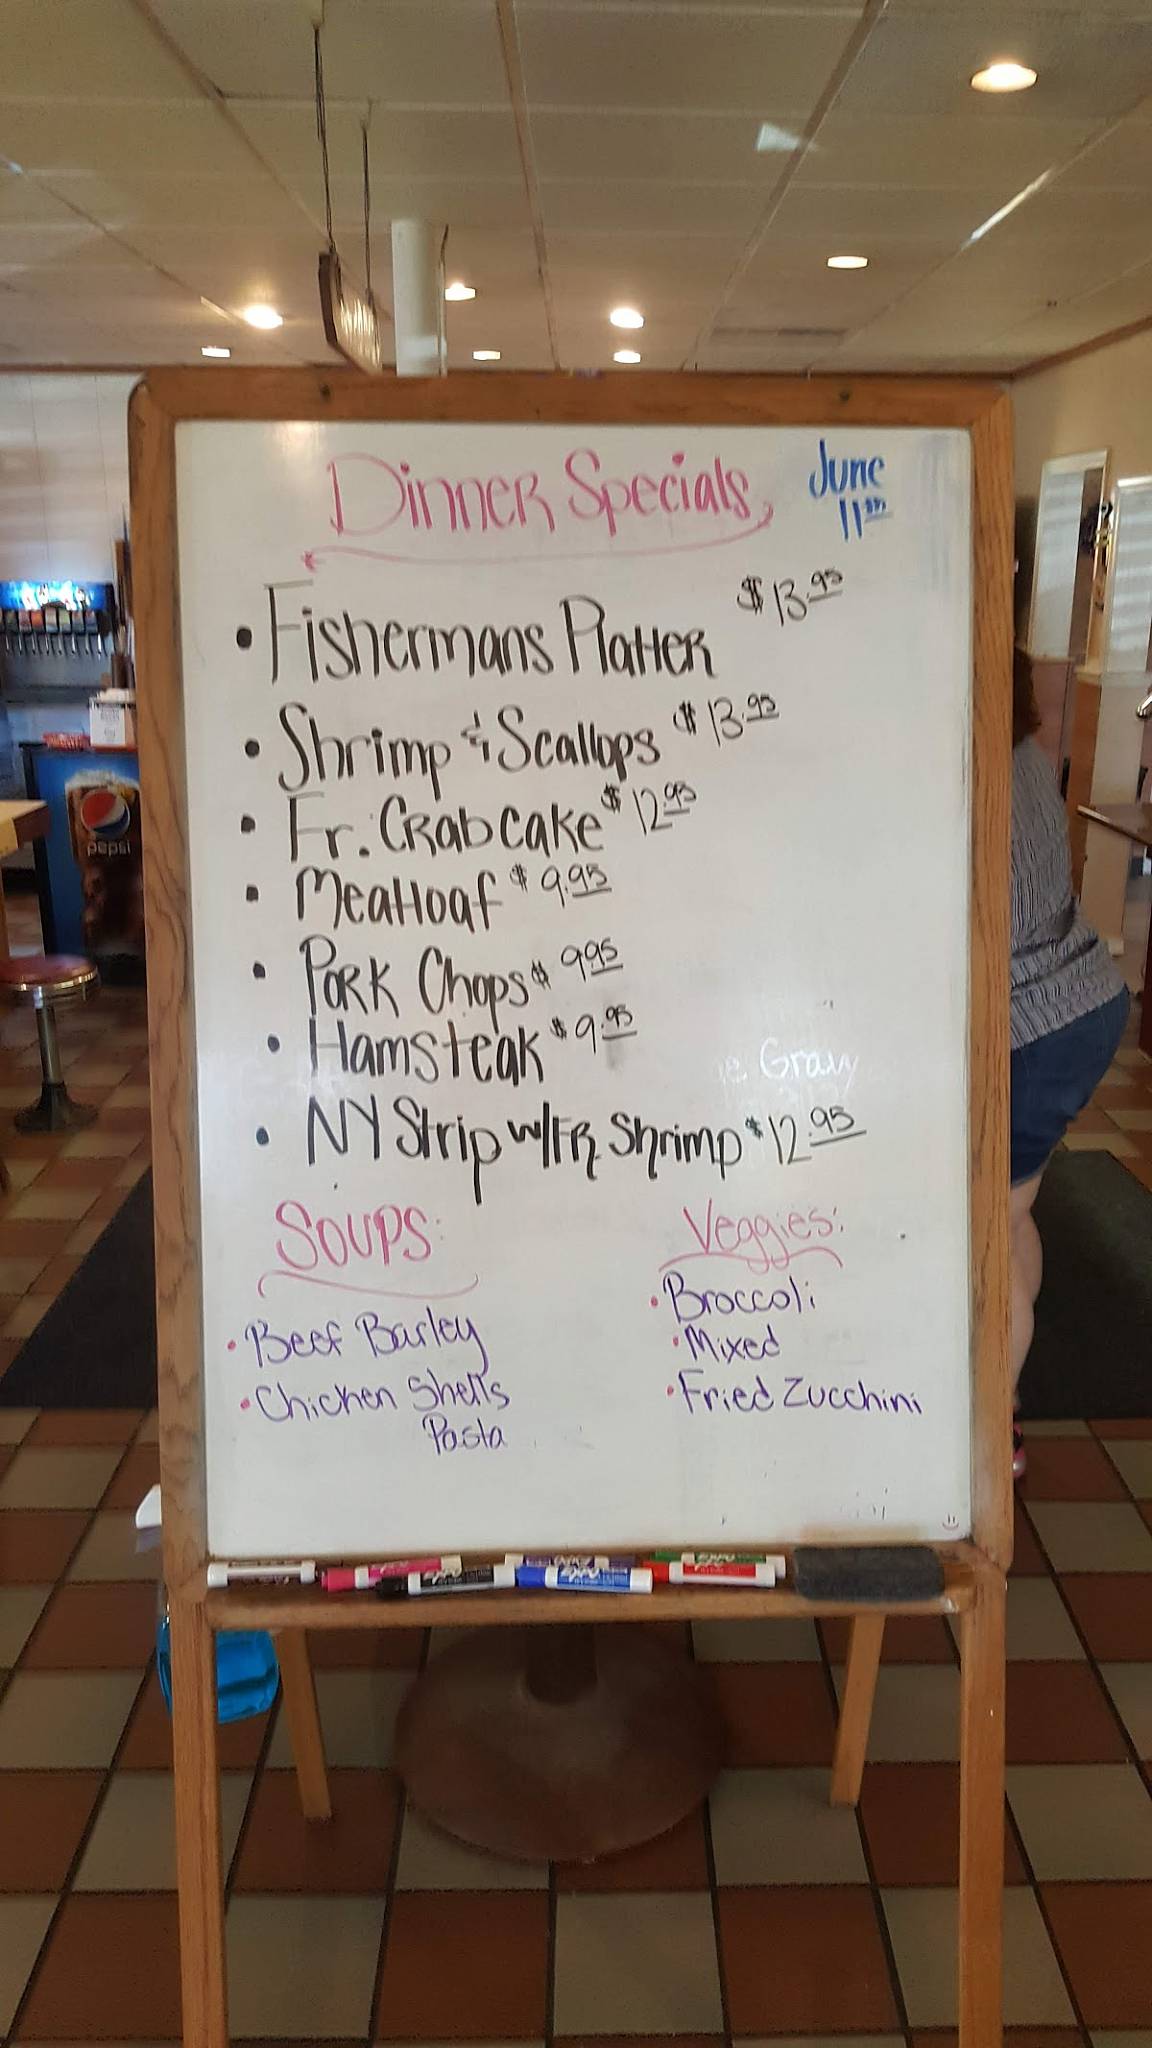 Dinner Specials June 11th
• Fishermans Platter $13.95
• Shrimp & Scallops $13.95
• Fr. Crabcake $12.95
• Meatloaf $9.95
• Pork Chops $9.95
• Hamsteak $9.95
Gravy
• NY Strip w/Fr Shrimp $12.95
Soups: Veggies:
• Beef Barley • Broccoli
• Mixed
• Chicken Shells • Fried Zucchini
Pasta
pepsi